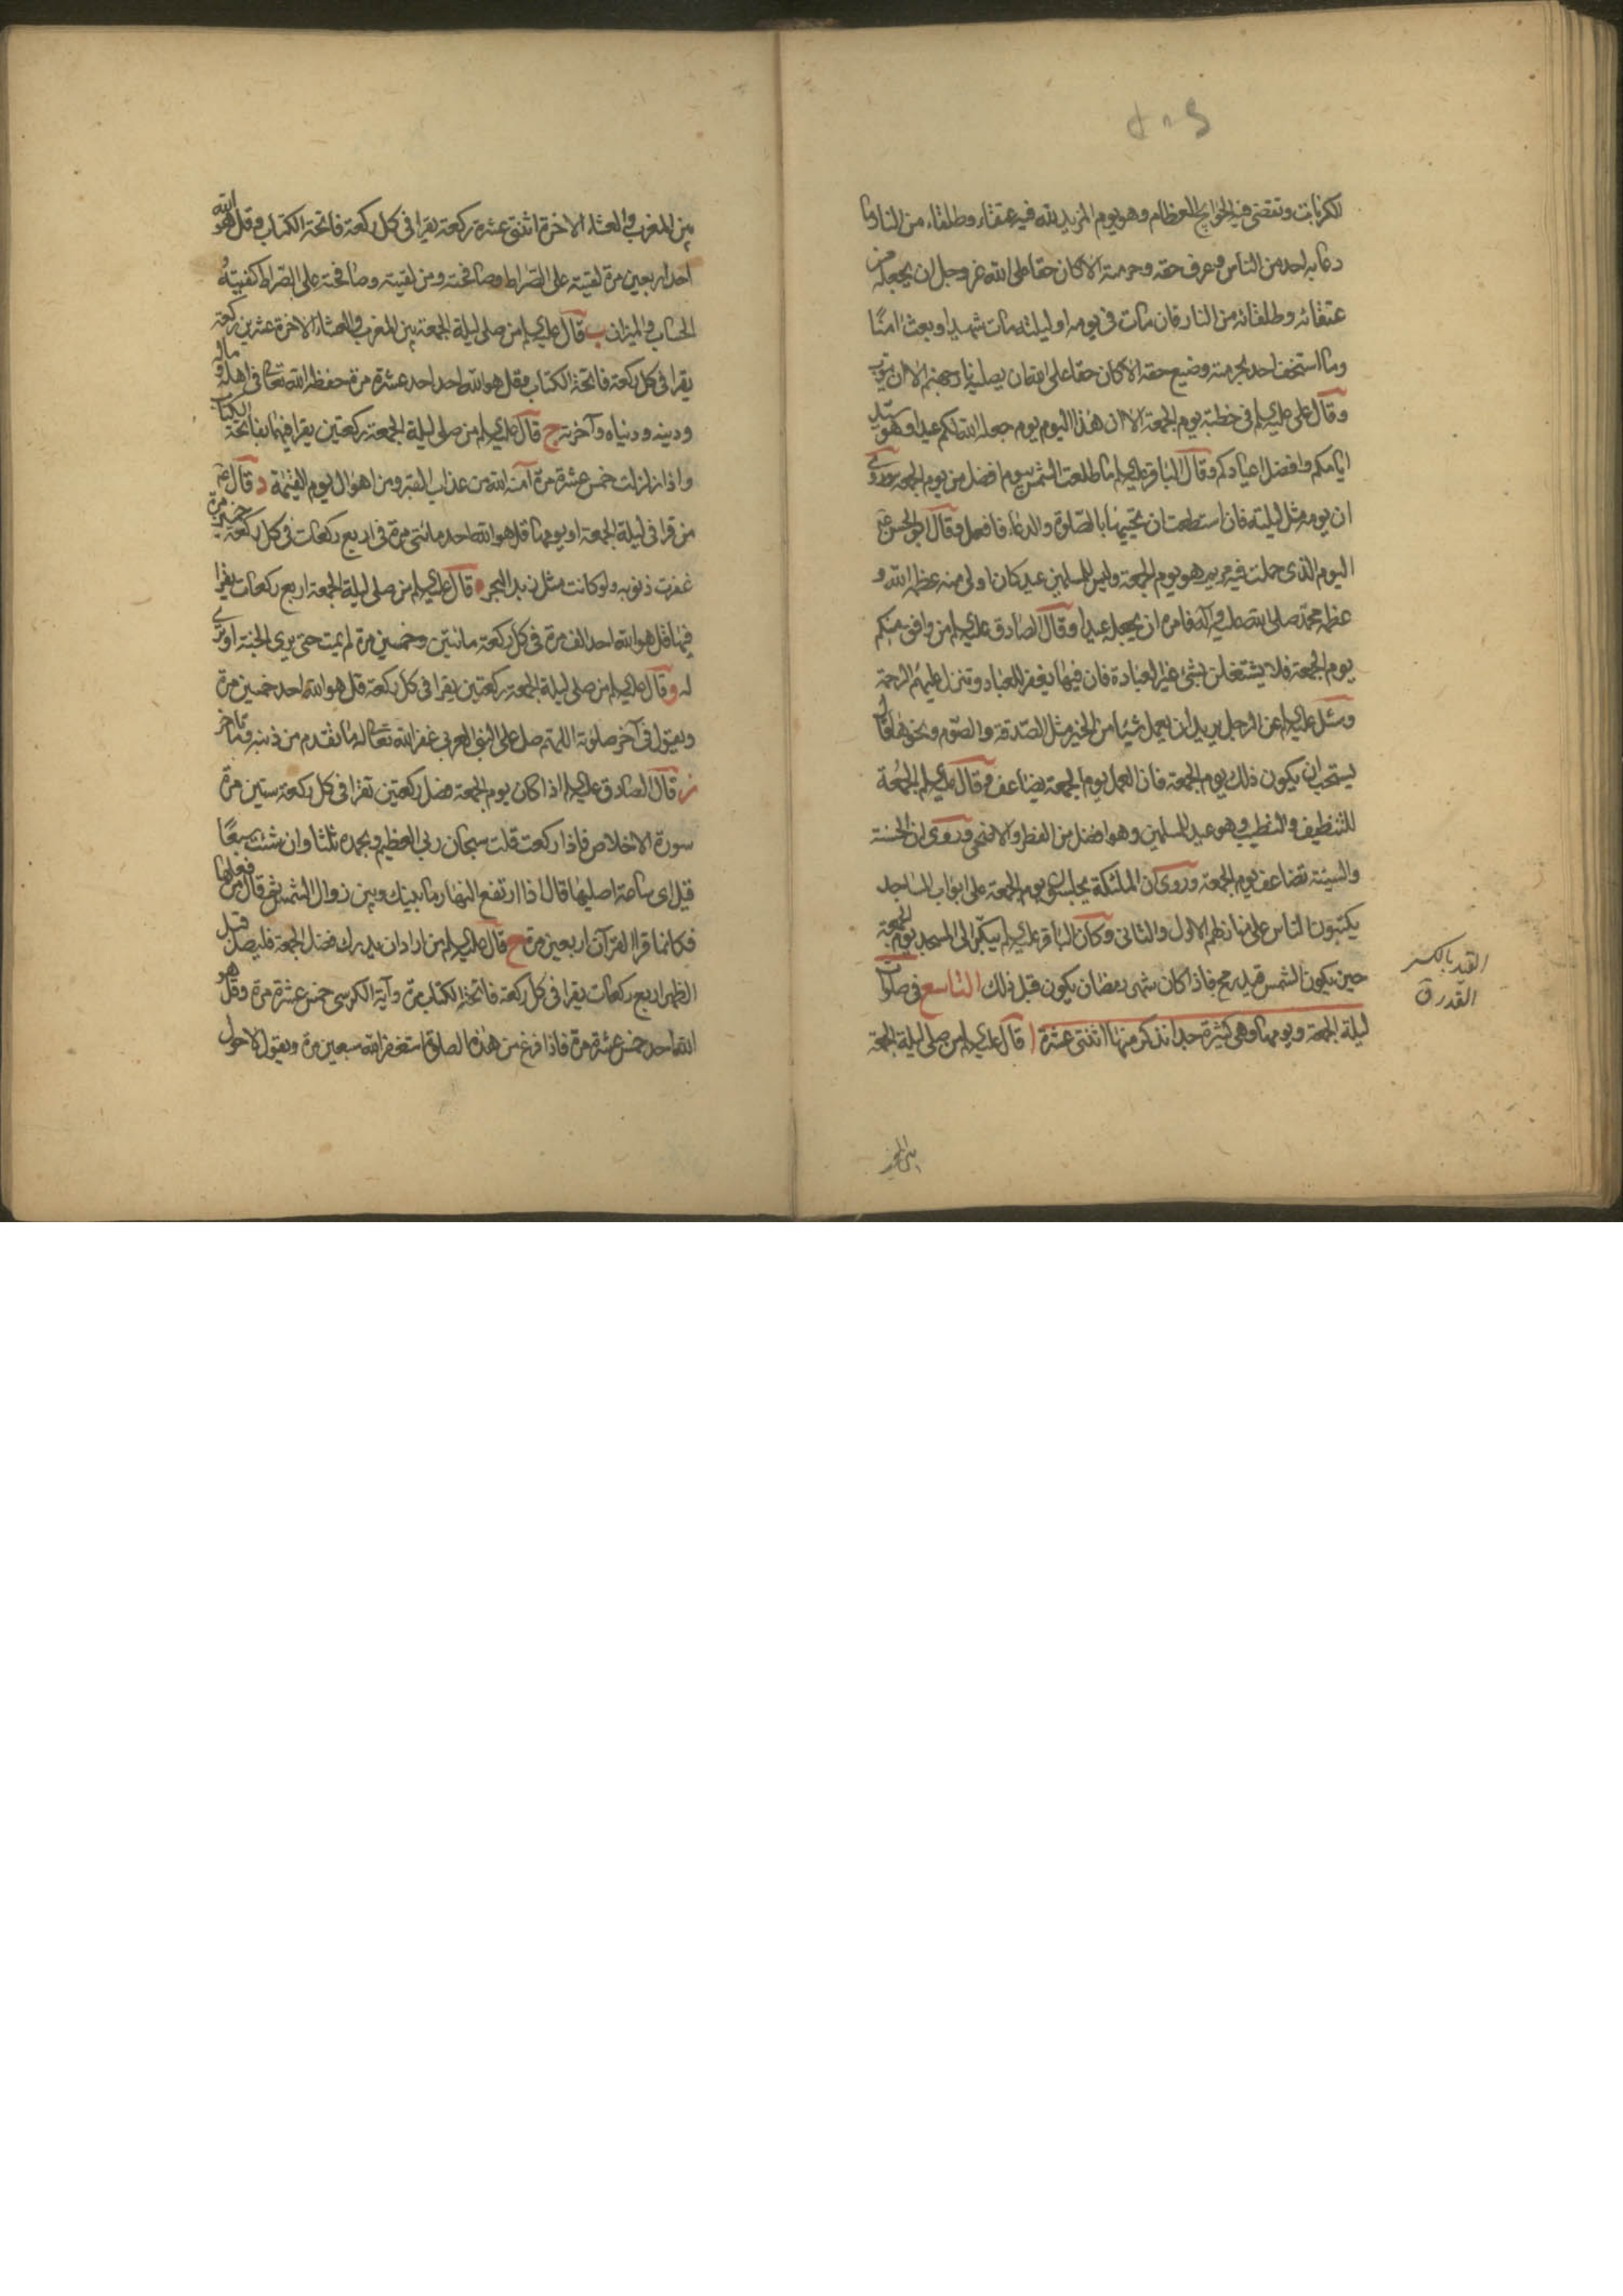 الكربات وتقضى فيه الحوائج العظام وهو يوم المزيد لله فيه عتقاء وطلقاء من النار وما
دعا به احد من الناس وعرف حقه وحرمته الا كان حقا على الله عز وجل ان يجعله من
عتقائه وطلقائه من النار فان مات في يومه او ليلته مات شهيدا وبعث امنا
وما استخف احد بحرمته وضيع حقه الا كان حقا على الله ان يصليه نار جهنم الا ان يتوب
وقال على عليه السلم في خطبة يوم الجمعة الا ان هذا اليوم يوم جعله الله لكم عيدا وهو سيد
ايامكم وافضل اعيادكم وقال الباقر عليه السلم ما طلعت الشمس بيوم افضل من يوم الجمعة وروى
ان يومه مثل ليلته فان استطعت ان تحييها بالصلوة والدعاء فافعل وقال ابو الحسن ع
اليوم الذى حملت فيه مريم هو يوم الجمعة وليس للمسلمين عيد كان اولى منه عظمه الله و
عظمه محمد صلى الله عليه وآله فامره ان يجعله عيدا وقال الصادق عليه السلم من وافق منكم
يوم الجمعة فلا يشتغلن بشئ غير العبادة فان فيها يغفر للعباد وتنزل عليهم الرحمة
وسئل عليه السلم عن الرجل يريد ان يعمل شيئا من الخير مثل الصدقة والصوم ونحوها قال
يستحب ان يكون ذلك يوم الجمعة فان العمل يوم الجمعة يضاعف وقال عليه السلم الجمعة
للتنظيف والتطيب وهو عيد للمسلمين وهو افضل من الفطر والاضحى وروى ان الحسنة
والسيئة تضاعف يوم الجمعة وروى ان الملئكة يجلسون يوم الجمعة على ابواب المساجد
يكتبون الناس على منازلهم الاول والثانى وكان الباقر عليه السلم يبكر الى المسجد يوم الجمعة
حين يكون الشمس قيد رمح فاذا كان شهر رمضان يكون قبل ذلك التاسع في صلوات
ليلة الجمعة ويومها وهى كثيرة جدا نذكر منها اثنتى عشرة ا قال عليه السلم من صلى ليلة الجمعة
القيد بالكسر
القدر ق
بين المغرب والعشاء الاخرة اثنتى عشرة ركعة يقرا في كل ركعة فاتحة الكتاب وقل هو الله
احد اربعين مرة لقيته على الصراط وصافحته ومن لقيته وصافحته على الصراط كفيته
الحساب والميزان ب قال عليه السلم من صلى ليلة الجمعة بين المغرب والعشاء الاخرة عشرين ركعة
يقرا في كل ركعة فاتحة الكتاب وقل هو الله احد احد عشرة مرة حفظه الله تعالى في اهله وماله
ودينه ودنياه وآخرته ج قال عليه السلم من صلى ليلة الجمعة ركعتين يقرا فيهما بفاتحة الكتاب
واذا زلزلت خمس عشرة مرة آمنه الله من عذاب القبر ومن اهوال يوم القيمة د قال ع
من قرا في ليلة الجمعة او يومها قل هو الله احد مائتى مرة في اربع ركعات في كل ركعة خمسين مرة
غفرت ذنوبه ولو كانت مثل زبد البحر ه قال عليه السلم من صلى ليلة الجمعة اربع ركعات يقرا
فيها قل هو الله احد الف مرة في كل ركعة مائتين وخمسين مرة لم يمت حتى يرى الجنة او ترى
له و قال عليه السلم من صلى ليلة الجمعة ركعتين يقرا في كل ركعة قل هو الله احد خمسين مرة
ويقول في آخر صلوته اللهم صل على النبى العربى غفر الله تعالى له ما تقدم من ذنبه وما تاخر
ز قال الصادق عليه السلم اذا كان يوم الجمعة فصل ركعتين تقرا في كل ركعة ستين مرة
سورة الاخلاص فاذا ركعت قلت سبحان ربى العظيم وبحمده ثلثا وان شئت سبعا
قيل اى ساعة اصليها قال اذا ارتفع النهار ما بينك وبين زوال الشمس ثم قال من فعلها
فكانما قرا القرآن اربعين مرة ح قال عليه السلم من اراد ان يدرك فضل الجمعة فليصل قبل
الظهر اربع ركعات يقرا في كل ركعة فاتحة الكتاب مرة وآية الكرسى خمس عشرة مرة وقل هو
الله احد خمس عشرة مرة فاذا فرغ من هذه الصلوة استغفر الله سبعين مرة ويقول لا حول